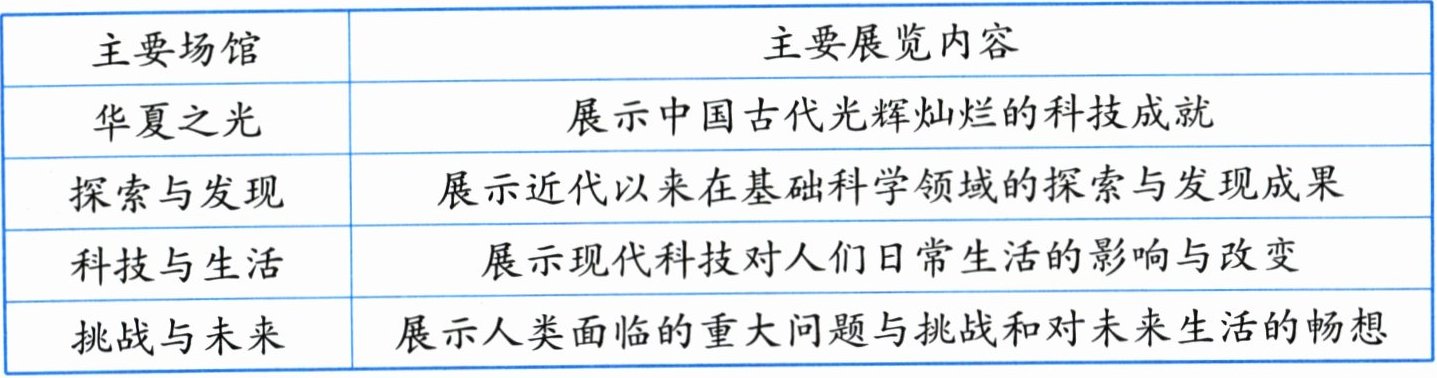 主要场馆 主要展览内容
华夏之光 展示中国古代光辉灿烂的科技成就
探索与发现 展示近代以来在基础科学领域的探索与发现成果
科技与生活 展示现代科技对人们日常生活的影响与改变
挑战与未来 展示人类面临的重大问题与挑战和对未来生活的畅想